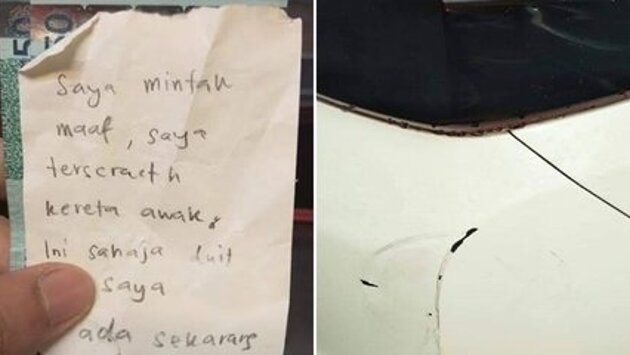 50
50
Saya mintak
maaf, saya
terscratch
kereta awak.
Ini sahaja duit
saya
ada sekarang